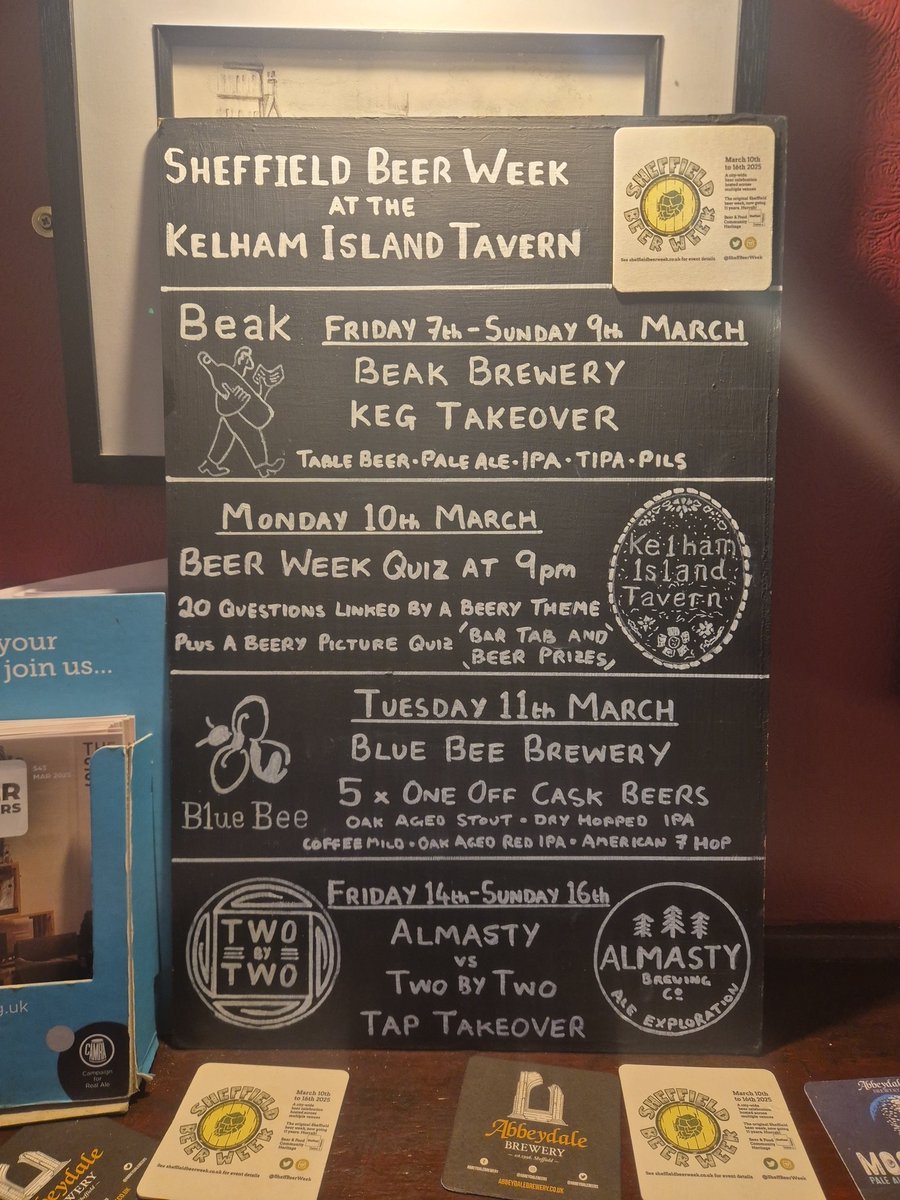 SHEFFIELD BEER WEEK
AT THE
KELHAM ISLAND TAVERN
SHEFFIELD
BEER WEEK
March 10th
to 16th 2025
A city-wide
beer celebration
hosted across
multiple venues
The original Sheffield
beer week, now going
11 years. Hurrah!
Beer & Food
Community
Heritage
See sheffieldbeerweek.co.uk for event details
@SheffBeerWeek
Beak
FRIDAY 7th - SUNDAY 9th MARCH
BEAK BREWERY
KEG TAKEOVER
TABLE BEER · PALE ALE · IPA · TIPA · PILS
MONDAY 10th MARCH
BEER WEEK QUIZ AT 9pm
20 QUESTIONS LINKED BY A BEERY THEME
PLUS A BEERY PICTURE QUIZ
'BAR TAB AND
BEER PRIZES,
Kelham
Island
Tavern
TUESDAY 11th MARCH
BLUE BEE BREWERY
5 x ONE OFF CASK BEERS
OAK AGED STOUT · DRY HOPPED IPA
COFFEE MILD · OAK AGED RED IPA · AMERICAN 7 HOP
Blue Bee
FRIDAY 14th - SUNDAY 16th
ALMASTY
VS
TWO BY TWO
TAP TAKEOVER
TWO
BY
TWO
ALMASTY
BREWING
CO
ALE EXPLORATION
your
join us...
MAR 2025
g.uk
CAMRA
Campaign
for
Real Ale
SHEFFIELD
BEER WEEK
March 10th
to 16th 2025
A city-wide
beer celebration
hosted across
multiple venues
The original Sheffield
beer week, now going
11 years. Hurrah!
Beer & Food
Community
Heritage
See sheffieldbeerweek.co.uk for event details
Abbeydale
BREWERY
est 1996, Sheffield
ABBEYDALEBREWERY.CO.UK
SHEFFIELD
BEER WEEK
March 10th
to 16th 2025
A city-wide
beer celebration
hosted across
multiple venues
The original Sheffield
beer week, now going
11 years. Hurrah!
Beer & Food
Community
Heritage
See sheffieldbeerweek.co.uk for event details
Abbeydale
BREWERY
Abbeydale
PALE